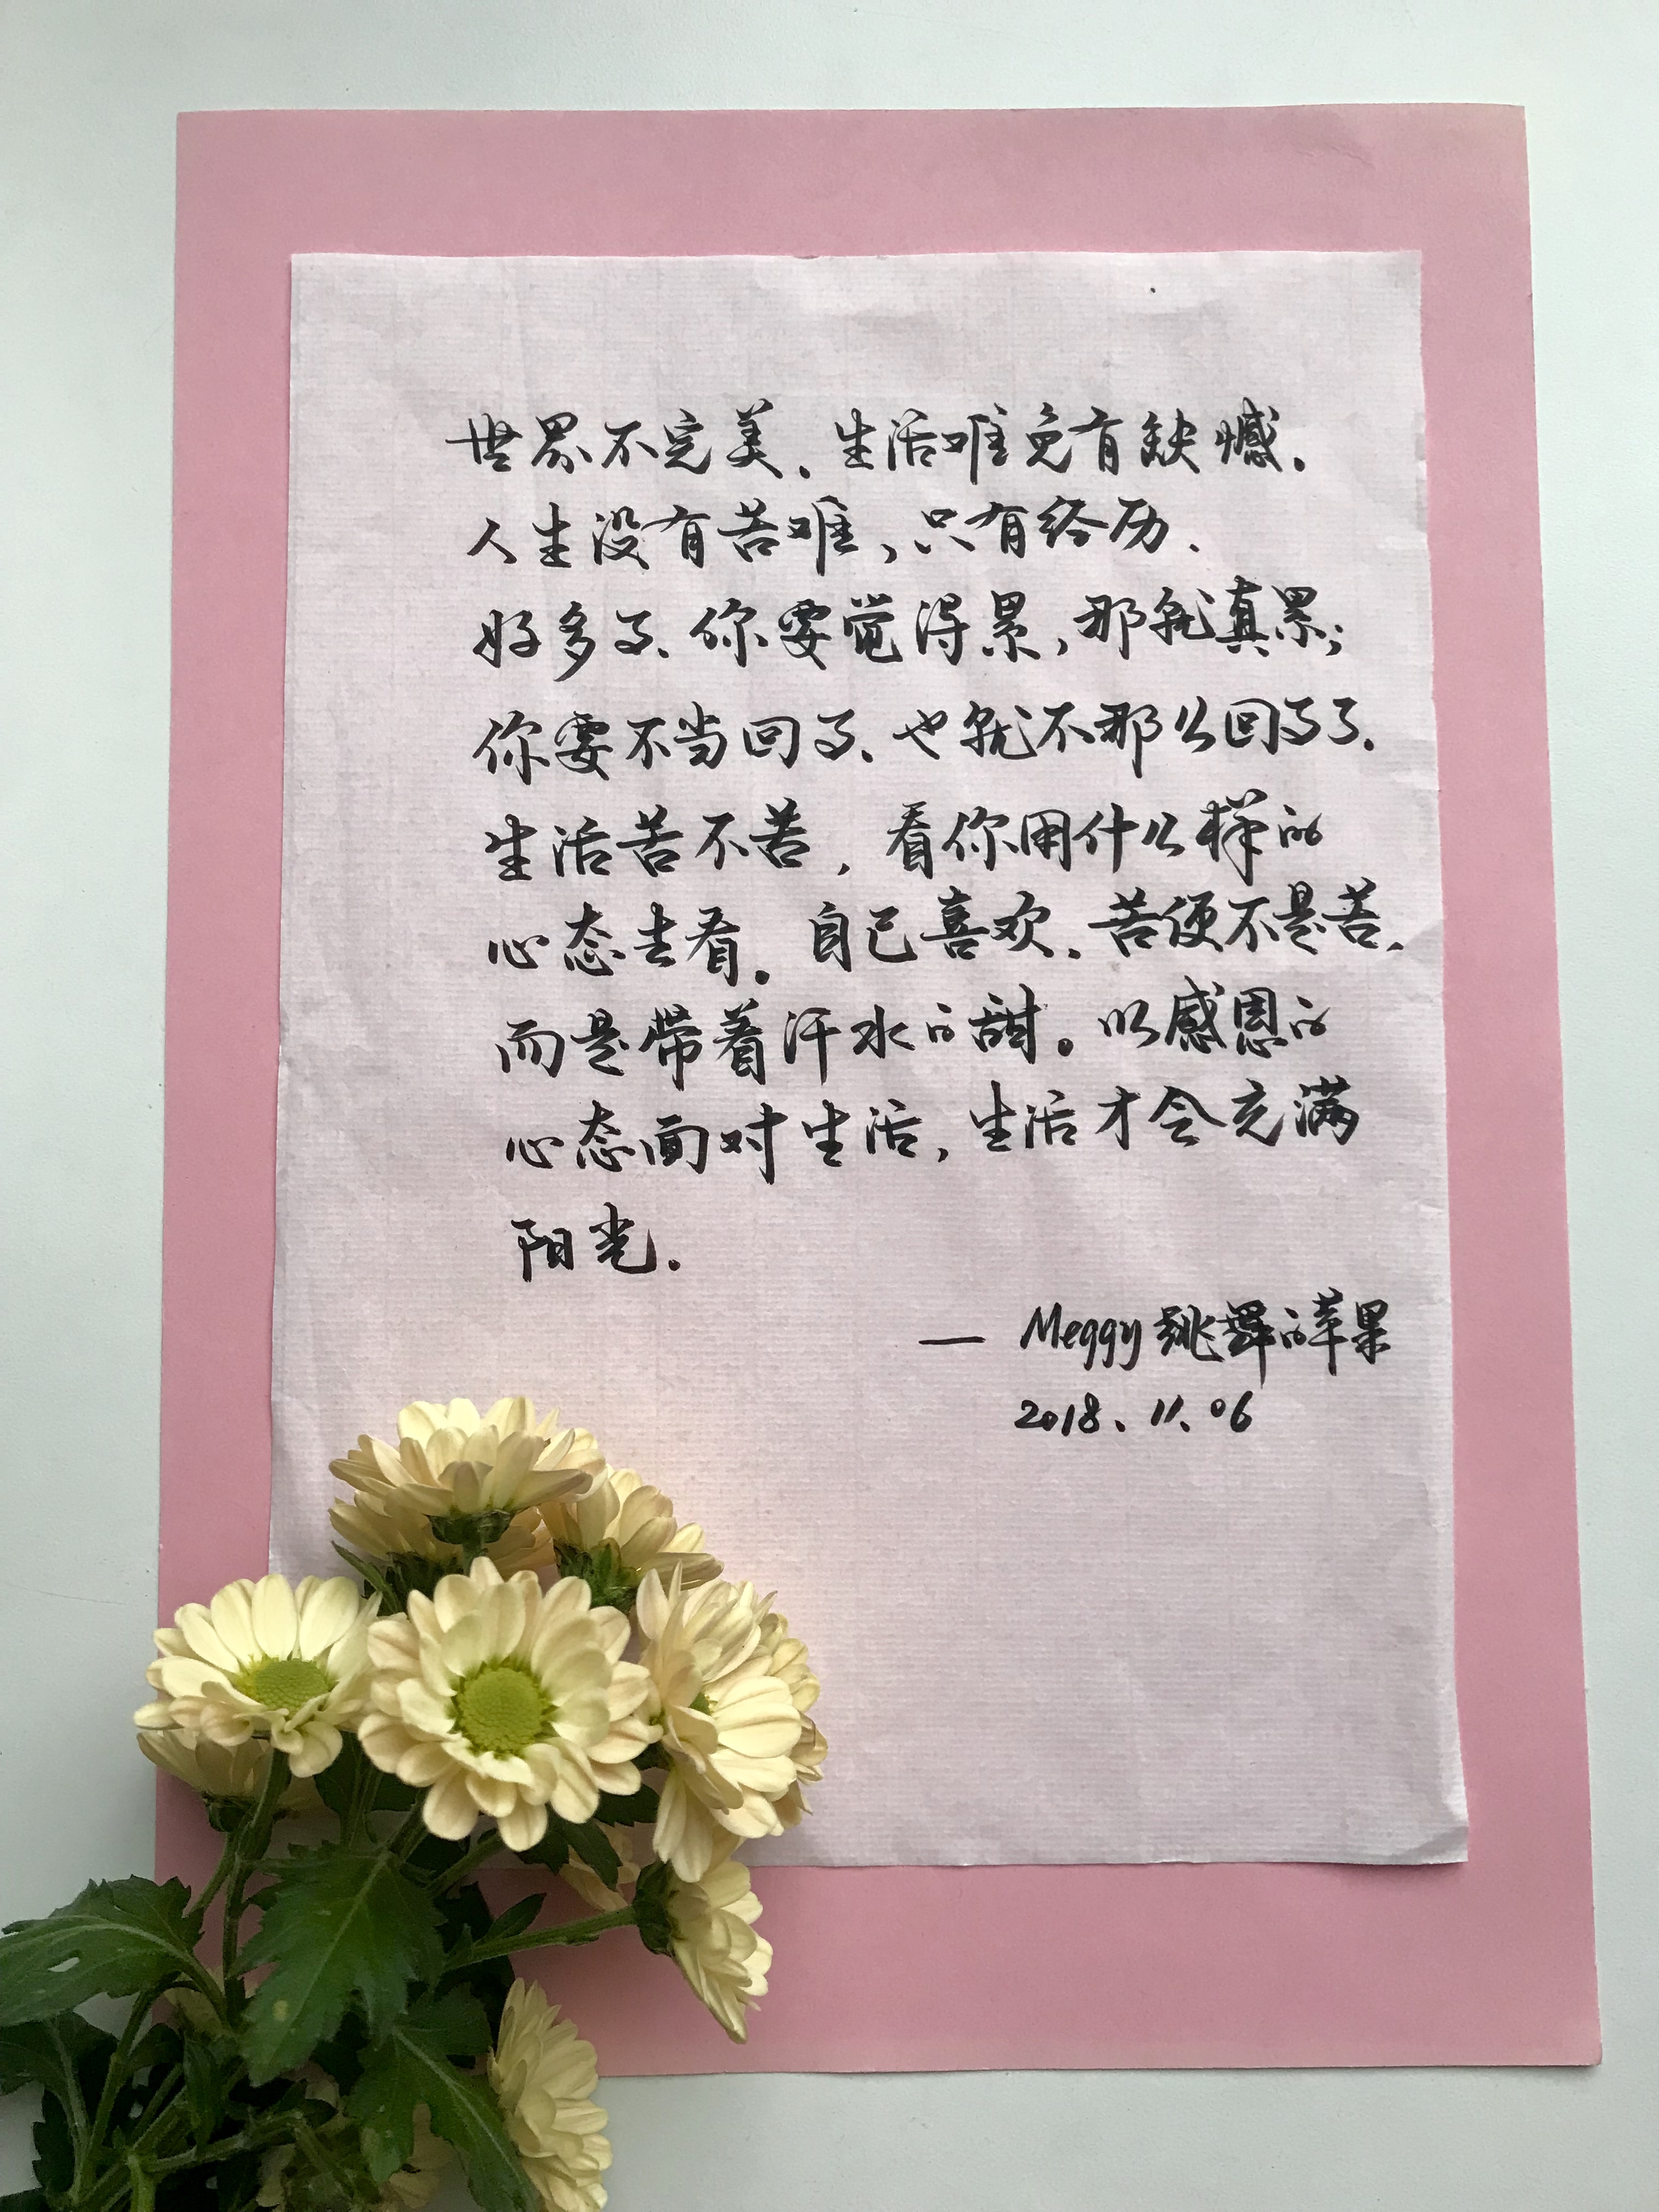 世界不完美，生活难免有缺憾。
人生没有苦难，只有经历、
好多事、你要觉得累，那就真累；
你要不当回事、也就不那么回事了。
生活苦不苦，看你用什么样的
心态去看。自己喜欢，苦便不是苦，
而是带着汗水的甜。以感恩的
心态面对生活，生活才会充满
阳光。
— Meggy跳舞的苹果
2018、11、06